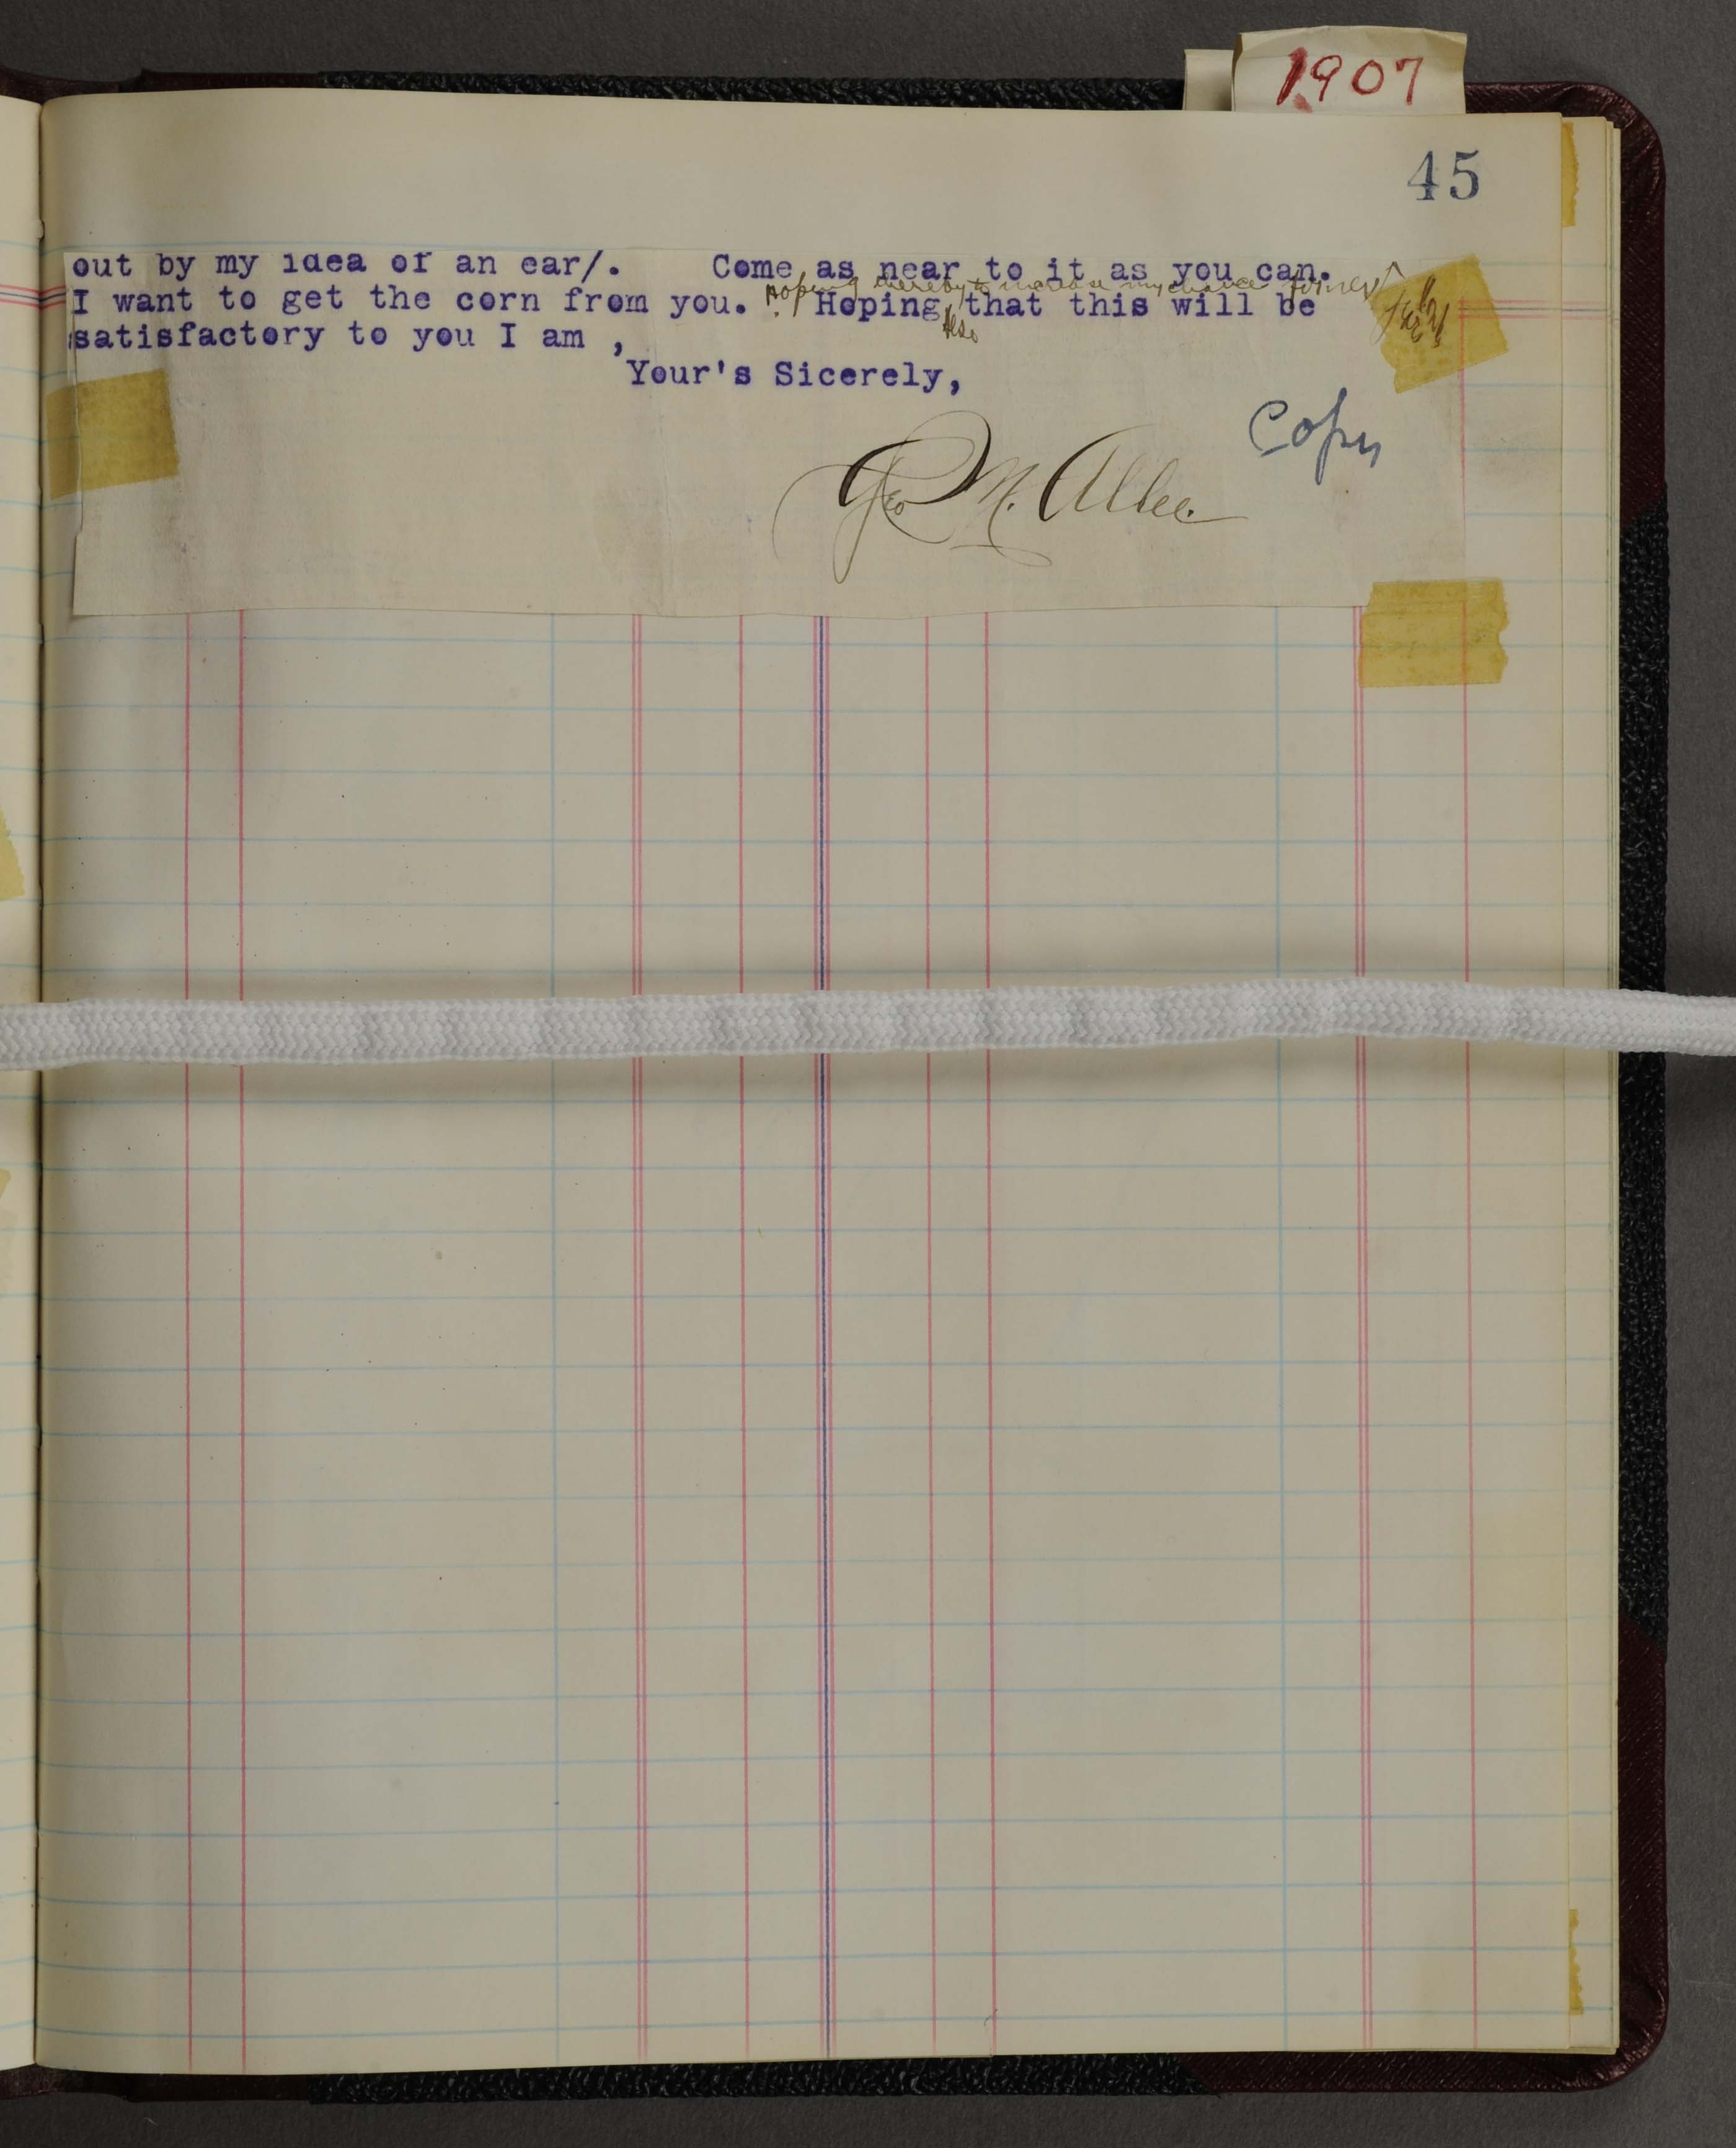 1907
45
out by my idea of an ear/. Come as near to it as you can.
hoping thereby to increase my chance for next
I want to get the corn from you. Hoping, that this will be
also
satisfactory to you I am ,
Your's Sicerely,
Copy
Geo M. Allee.